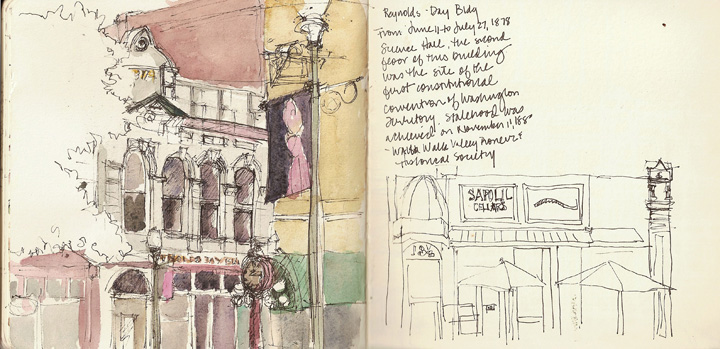 Reynolds-Day Bldg
From June 11 to July 27, 1878
Science Hall, the second
floor of this building
was the site of the
first constitutional
convention of Washington
Territory. Statehood was
achieved on November 11, 188
- Walla Walla Valley Pioneer &
Historical Society
SAPOLIL
CELLARS